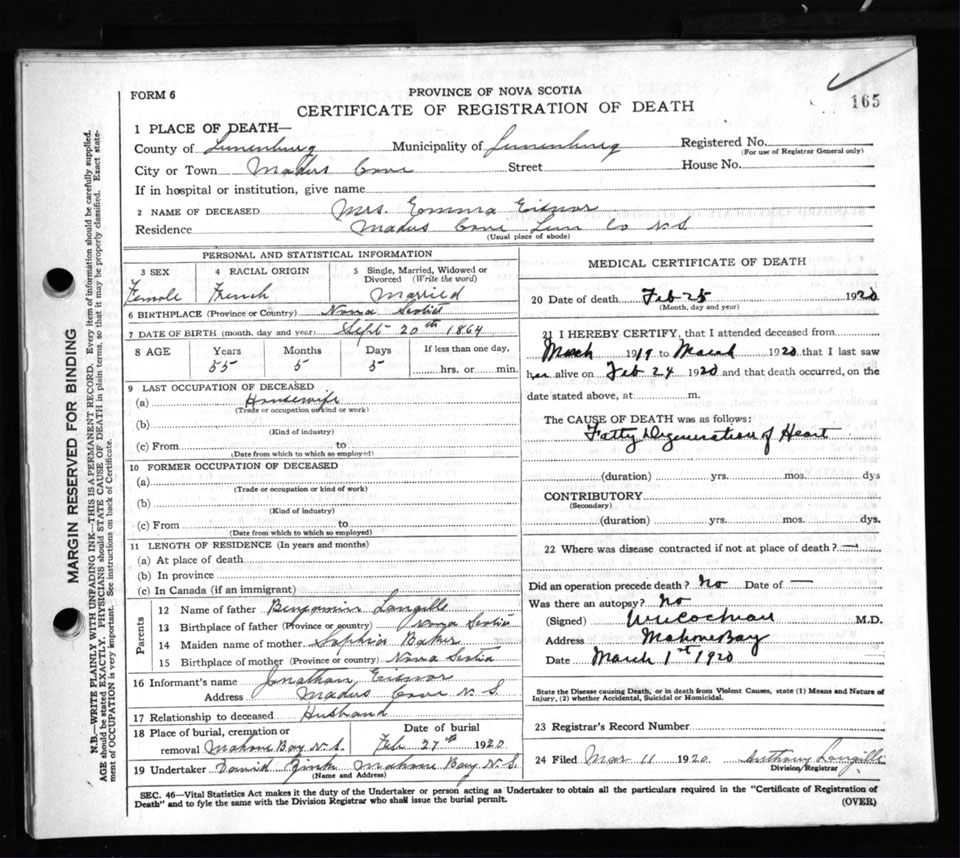 165
FORM 6
PROVINCE OF NOVA SCOTIA
CERTIFICATE OF REGISTRATION OF DEATH
1 PLACE OF DEATH—
County of Lunenburg Municipality of Lunenburg Registered No.
(For use of Registrar General only)
City or Town Maders Cove Street House No.
If in hospital or institution, give name
2 NAME OF DECEASED Mrs. Emma Eisnor
Residence Maders Cove Lun Co N.S.
(Usual place of abode)
PERSONAL AND STATISTICAL INFORMATION
3 SEX 4 RACIAL ORIGIN 5 Single, Married, Widowed or Divorced (Write the word)
Female French Married
6 BIRTHPLACE (Province or Country) Nova Scotia
7 DATE OF BIRTH (month, day and year) Sept 20th 1864
8 AGE Years Months Days If less than one day,
55 5 5 hrs. or min.
9 LAST OCCUPATION OF DECEASED
(a) Housewife
(Trade or occupation or kind or work)
(b)
(Kind of industry)
(c) From to
(Date from which to which so employed)
10 FORMER OCCUPATION OF DECEASED
(a)
(Trade or occupation or kind of work)
(b)
(Kind of industry)
(c) From to
(Date from which to which so employed)
11 LENGTH OF RESIDENCE (In years and months)
(a) At place of death
(b) In province
(c) In Canada (if an immigrant)
Parents
12 Name of father Benjamin Langille
13 Birthplace of father (Province or country) Nova Scotia
14 Maiden name of mother Sophia Baker
15 Birthplace of mother (Province or country) Nova Scotia
16 Informant's name Jonathan Eisnor
Address Maders Cove N.S.
17 Relationship to deceased Husband
18 Place of burial, cremation or removal Mahone Bay N.S. Date of burial Feb 27th 1920
19 Undertaker David Zink Mahone Bay N.S.
(Name and Address)
MEDICAL CERTIFICATE OF DEATH
20 Date of death Feb 25 1920
(Month, day and year)
21 I HEREBY CERTIFY, that I attended deceased from
March 1919 to March 1920 that I last saw
her alive on Feb 24 1920 and that death occurred, on the
date stated above, at m.
The CAUSE OF DEATH was as follows:
Fatty Degeneration of Heart
(duration) yrs. mos. dys
CONTRIBUTORY
(Secondary)
(duration) yrs. mos. dys.
22 Where was disease contracted if not at place of death? —
Did an operation precede death? No Date of —
Was there an autopsy? No
(Signed) Cochran M.D.
Address Mahone Bay
Date March 1st 1920
State the Disease causing Death, or in death from Violent Causes, state (1) Means and Nature of
Injury, (2) whether Accidental, Suicidal or Homicidal.
23 Registrar's Record Number
24 Filed Mar 11 1920 Anthony Langille
Division Registrar
SEC. 46—Vital Statistics Act makes it the duty of the Undertaker or person acting as Undertaker to obtain all the particulars required in the "Certificate of Registration of
Death" and to fyle the same with the Division Registrar who shall issue the burial permit.
(OVER)
MARGIN RESERVED FOR BINDING
N.B.—WRITE PLAINLY WITH UNFADING INK—THIS IS A PERMANENT RECORD. Every item of information should be carefully supplied.
AGE should be stated EXACTLY. PHYSICIANS should STATE CAUSE OF DEATH in plain terms, so that it may be properly classified. Exact state-
ment of OCCUPATION is very important. See instructions on back of Certificate.